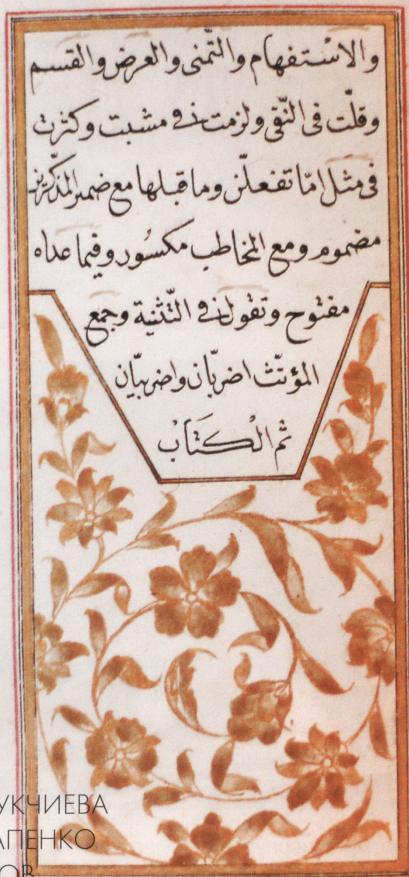 والاستفهام والتّمنى والعرض والقسم
وقلّت فى النّفى ولزمت فى مثبت وكثرت
فى مثل امّا تفعلنّ وما قبلها مع ضمير المذكّرين
مضموم ومع المخاطب مكسور وفيما عداه
مفتوح وتقول فى التّثنية وجمع
المؤنّث اضربانّ واضربنانّ
تم الْكتَابْ
УКЧИЕВА
АПЕНКО
ОВ